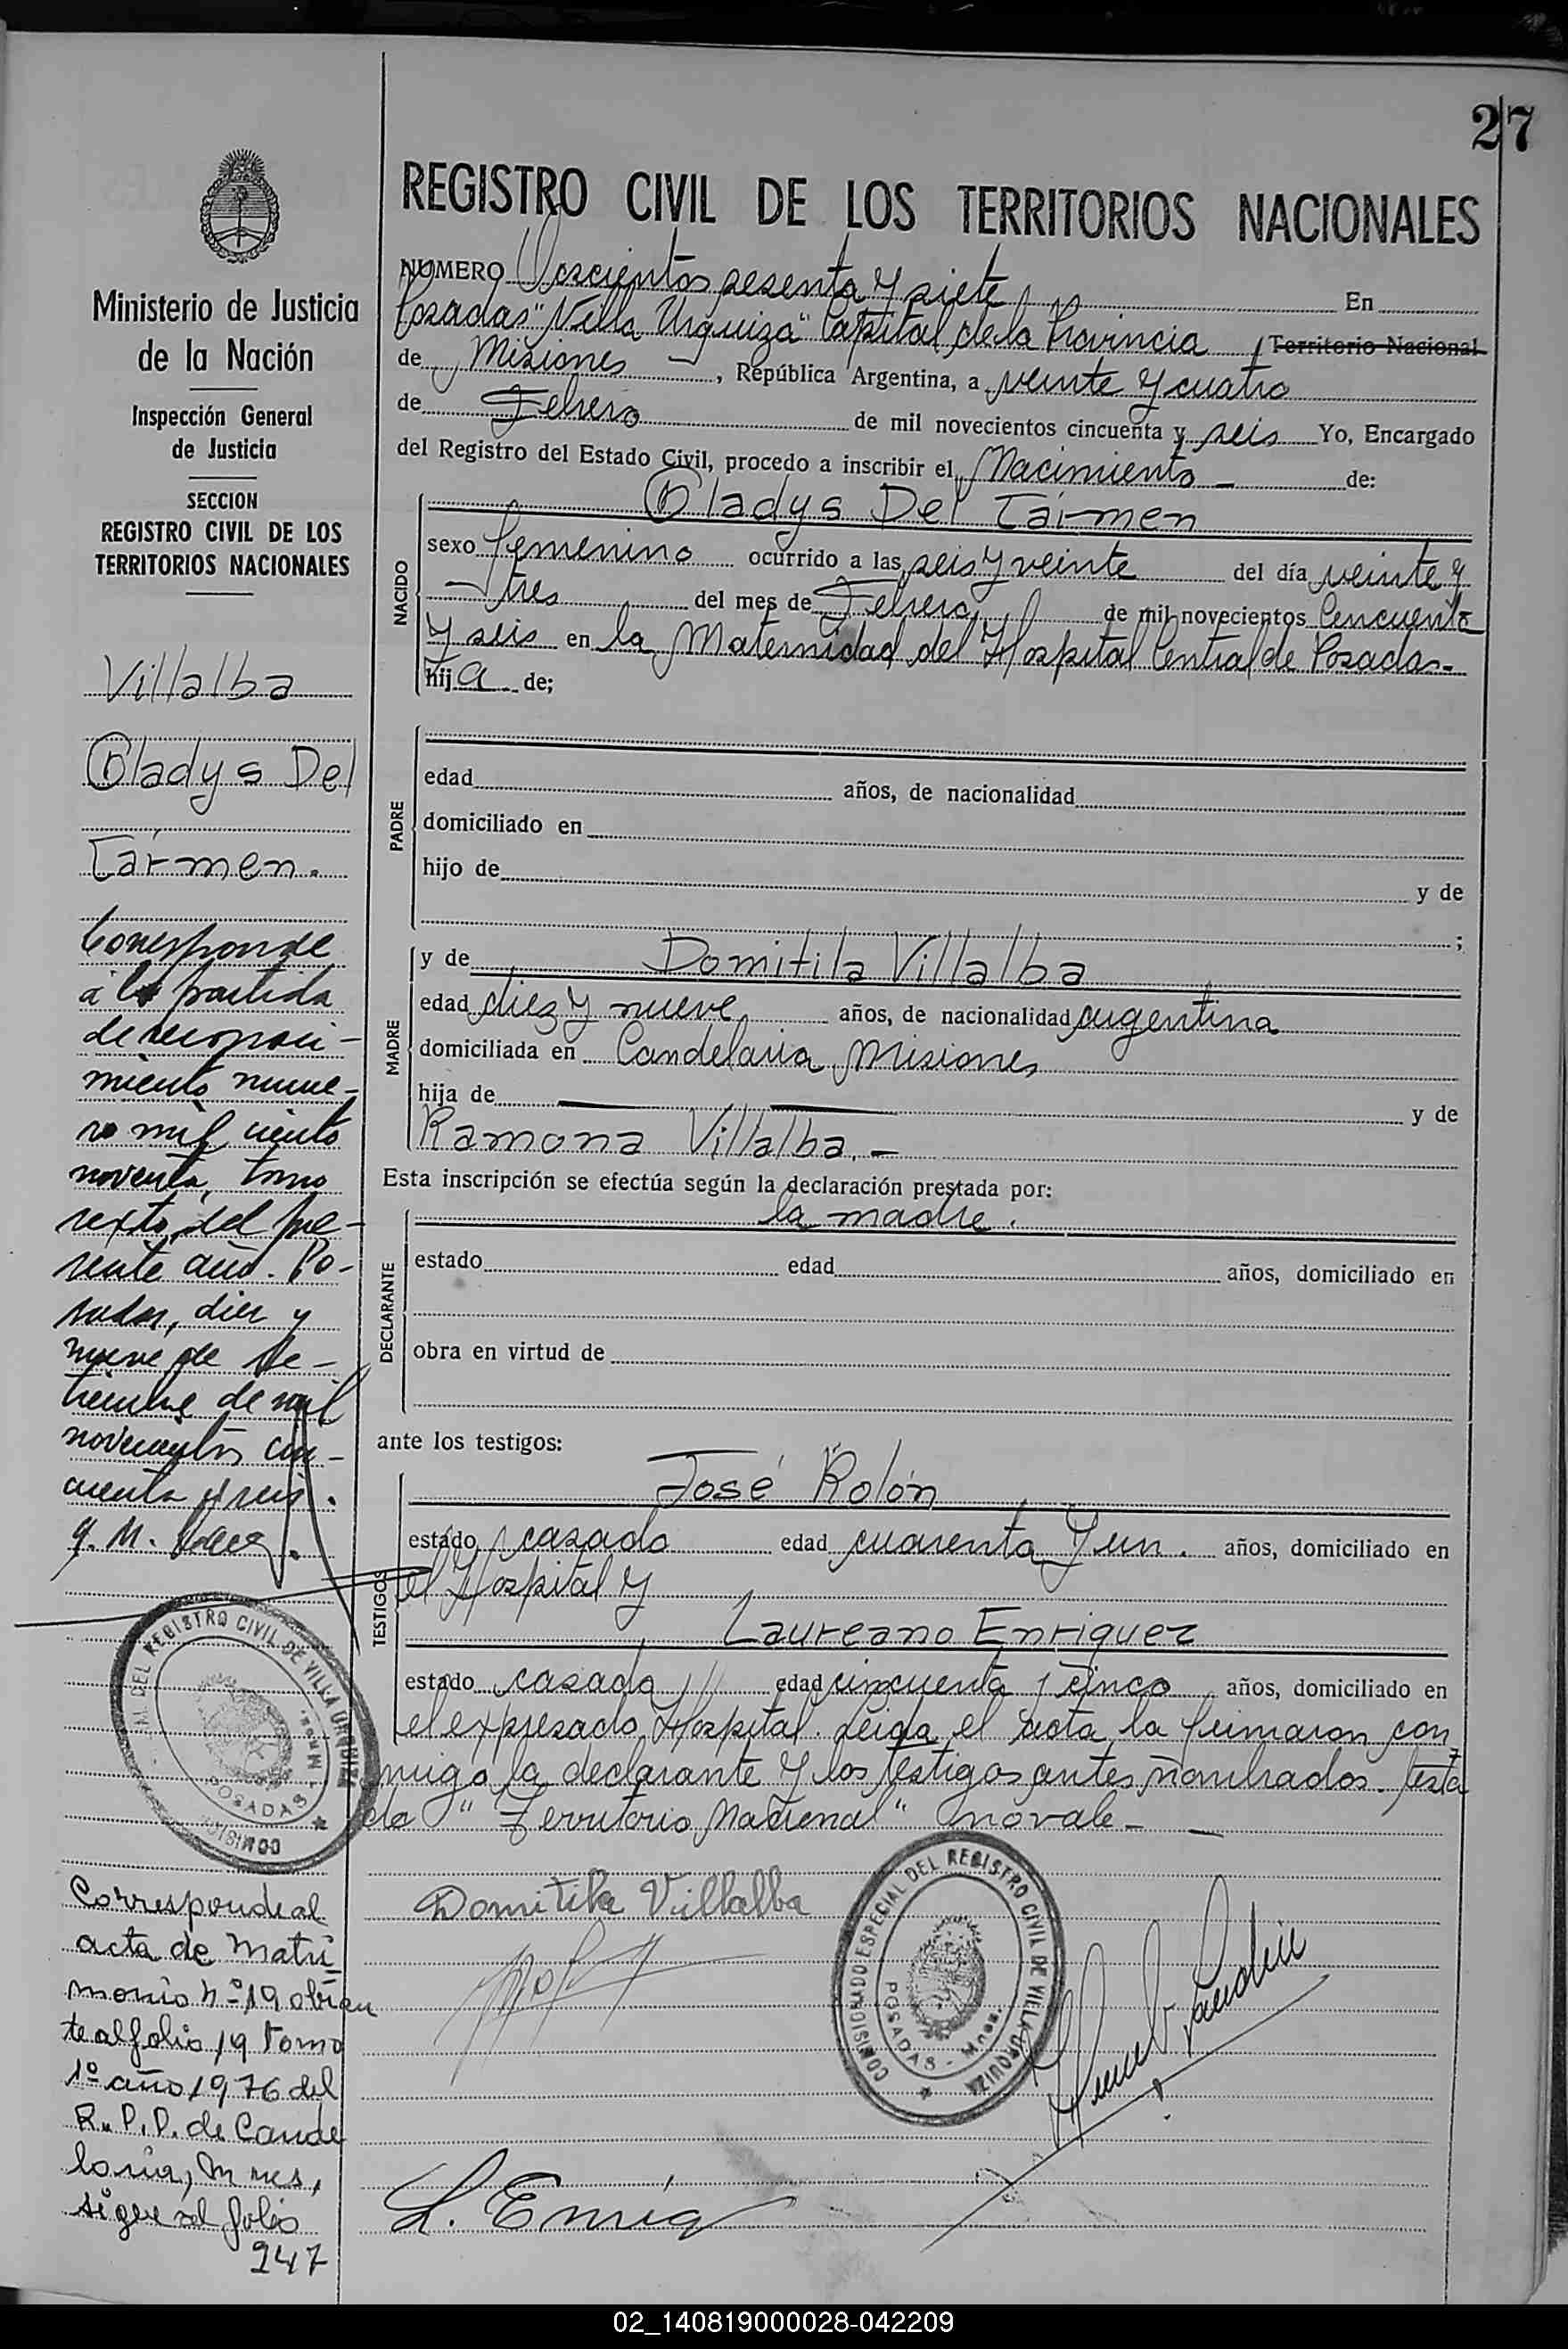 27
REGISTRO CIVIL DE LOS TERRITORIOS NACIONALES
Ministerio de Justicia
de la Nación
Inspección General
de Justicia
SECCION
REGISTRO CIVIL DE LOS
TERRITORIOS NACIONALES
Villalba
Gladys Del
Cármen.
Corresponde
a la partida
de reconoci-
miento núme-
ro mil ciento
noventa, tomo
sexto del pre-
sente año. Po-
sadas, diez y
nueve de Se-
tiembre de mil
novecientos cin-
cuenta y seis.
COMISION DEL REGISTRO CIVIL DE VILLA URQUIZA
POSADAS - Mnes.
Corresponde al
acta de Matri
monio Nº 19 obran
te al folio 19 Tomo
1º año 1976 del
R.P.P. de Cande
laria, Mnes,
sigue al folio
247
NUMERO Doscientos sesenta y siete En
Posadas "Villa Urquiza" Capital de la Provincia Territorio Nacional
de Misiones - , República Argentina, a veinte y cuatro
de Febrero de mil novecientos cincuenta y seis Yo, Encargado
del Registro del Estado Civil, procedo a inscribir el Nacimiento - de:
NACIDO
Gladys Del Cármen
sexo femenino ocurrido a las seis y veinte del día veinte y
- tres del mes de Febrero de mil novecientos Cincuenta
y seis en la Maternidad del Hospital Central de Posadas.-
hija de;
PADRE
edad años, de nacionalidad
domiciliado en
hijo de y de
;
MADRE
y de Domitila Villalba
edad diez y nueve años, de nacionalidad argentina
domiciliada en Candelaria Misiones
hija de — — y de
Ramona Villalba.-
Esta inscripción se efectúa según la declaración prestada por:
DECLARANTE
la madre.
estado edad años, domiciliado en
obra en virtud de
ante los testigos:
TESTIGOS
José Rolón
estado casado edad cuarenta y un. años, domiciliado en
el Hospital y
Laureano Enriquez
estado casado edad cincuenta y cinco años, domiciliado en
el expresado Hospital. Leida el acta la firmaron con
migo la declarante y los testigos antes nombrados. Testa
do "Territorio Nacional" no vale - —
Domitila Villalba
COMISIONADO ESPECIAL DEL REGISTRO CIVIL DE VILLA URQUIZA
POSADAS - Mnes.
L. Enriq
02_140819000028-042209